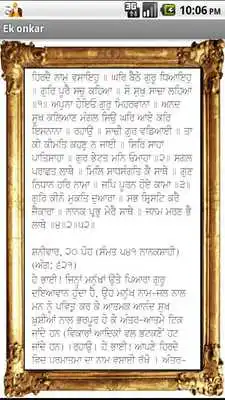 10:06 PM
Ek onkar
ਹਿਰਦੈ ਨਾਮੁ ਵਸਾਇਹੁ ॥ ਘਰਿ ਬੈਠੇ ਗੁਰੂ ਧਿਆਇਹੁ
॥ ਗੁਰਿ ਪੂਰੈ ਸਚੁ ਕਹਿਆ ॥ ਸੋ ਸੁਖੁ ਸਾਚਾ ਲਹਿਆ
॥੧॥ ਅਪੁਨਾ ਹੋਇਓ ਗੁਰੁ ਮਿਹਰਵਾਨਾ ॥ ਅਨਦ
ਸੂਖ ਕਲਿਆਣ ਮੰਗਲ ਸਿਉ ਘਰਿ ਆਏ ਕਰਿ
ਇਸਨਾਨਾ ॥ ਰਹਾਉ ॥ ਸਾਚੀ ਗੁਰ ਵਡਿਆਈ ॥ ਤਾ
ਕੀ ਕੀਮਤਿ ਕਹਣੁ ਨ ਜਾਈ ॥ ਸਿਰਿ ਸਾਹਾ
ਪਾਤਿਸਾਹਾ ॥ ਗੁਰ ਭੇਟਤ ਮਨਿ ਓਮਾਹਾ ॥੨॥ ਸਗਲ
ਪਰਾਛਤ ਲਾਥੇ ॥ ਮਿਲਿ ਸਾਧਸੰਗਤਿ ਕੈ ਸਾਥੇ ॥ ਗੁਣ
ਨਿਧਾਨ ਹਰਿ ਨਾਮਾ ॥ ਜਪਿ ਪੂਰਨ ਹੋਏ ਕਾਮਾ ॥੩॥
ਗੁਰਿ ਕੀਨੋ ਮੁਕਤਿ ਦੁਆਰਾ ॥ ਸਭ ਸ੍ਰਿਸਟਿ ਕਰੈ
ਜੈਕਾਰਾ ॥ ਨਾਨਕ ਪ੍ਰਭੁ ਮੇਰੈ ਸਾਥੇ ॥ ਜਨਮ ਮਰਣ ਭੈ
ਲਾਥੇ ॥੪॥੨॥੫੨॥
ਸ਼ਨੀਵਾਰ, ੨੦ ਪੋਹ (ਸੰਮਤ ੫੪੧ ਨਾਨਕਸ਼ਾਹੀ)
(ਅੰਗ: ੬੨੧)
ਹੇ ਭਾਈ! ਜਿਨ੍ਹਾਂ ਮਨੁੱਖਾਂ ਉਤੇ ਪਿਆਰਾ ਗੁਰੂ
ਦਇਆਵਾਨ ਹੁੰਦਾ ਹੈ, ਉਹ ਮਨੁੱਖ ਨਾਮ-ਜਲ ਨਾਲ
ਮਨ ਨੂੰ ਪਵਿੱਤ੍ਰ ਕਰ ਕੇ ਆਤਮਕ ਆਨੰਦ ਸੁਖ
ਖ਼ੁਸ਼ੀਆਂ ਨਾਲ ਭਰਪੂਰ ਹੋ ਕੇ ਅੰਤਰ-ਆਤਮੇ ਟਿਕ
ਜਾਂਦੇ ਹਨ (ਵਿਕਾਰਾਂ ਆਦਿਕਾਂ ਵਲ ਭਟਕਣੋਂ ਹਟ
ਜਾਂਦੇ ਹਨ) । ਰਹਾਉ। ਹੇ ਭਾਈ! ਆਪਣੇ ਹਿਰਦੇ
ਵਿਚ ਪਰਮਾਤਮਾ ਦਾ ਨਾਮ ਵਸਾਈ ਰੱਖੋ । ਅੰਤਰ-